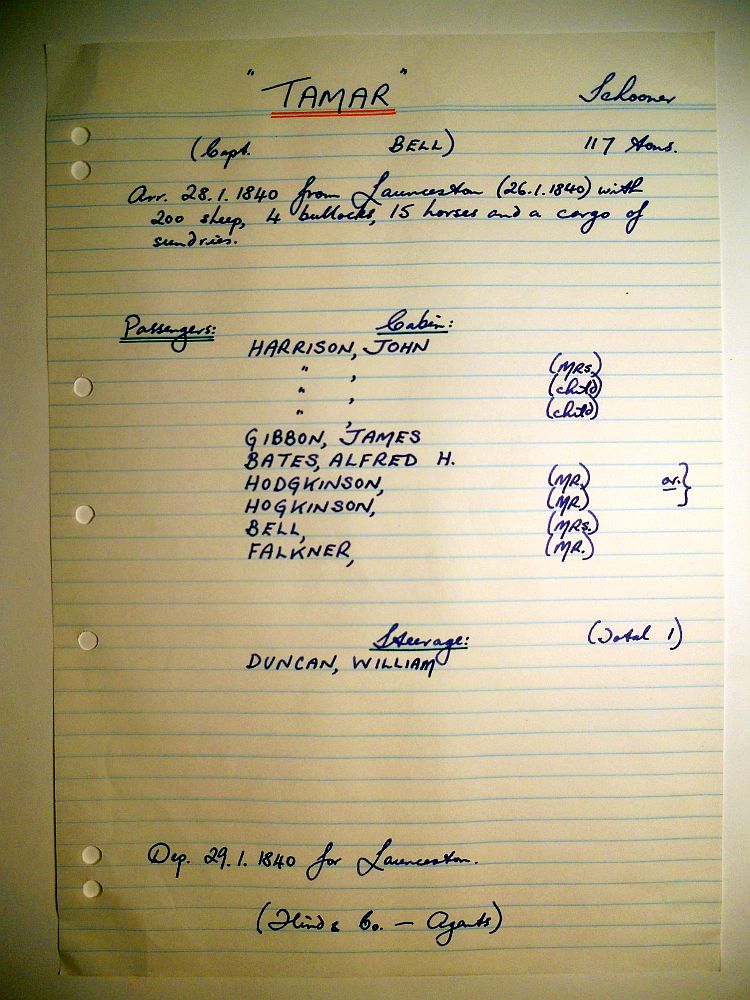 "TAMAR" Schooner
(Capt. BELL) 117 tons.
Arr. 28.1.1840 from Launceston (26.1.1840) with
200 sheep, 4 bullocks, 15 horses and a cargo of
sundries.
Passengers: Cabin:
HARRISON, JOHN
" , (MRS.)
" , (child)
" , (child)
GIBBON, JAMES
BATES, ALFRED H.
HODGKINSON, (MR.) or.}
HOGKINSON, (MR)
BELL, (MRS.)
FALKNER, (MR.)
Steerage: (Total 1)
DUNCAN, WILLIAM
Dep. 29.1.1840 for Launceston.
(Hind & Co. — Agents)